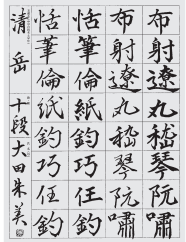 布射遼丸嵇琴阮嘯
布射遼丸嵇琴阮嘯
恬筆倫紙鈞巧任釣
恬筆倫紙鈞巧任釣
清岳 十段 大田朱美